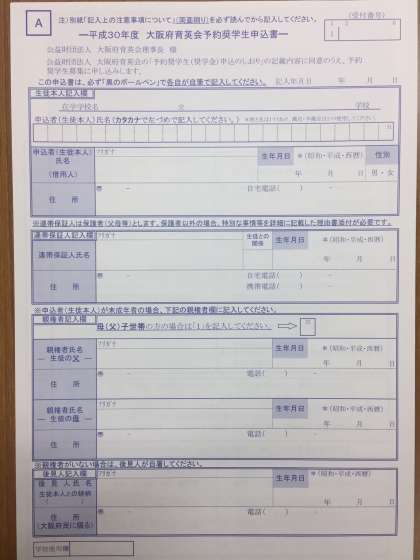 A
注)別紙「記入上の注意事項について」(両面刷り)を必ず読んでから記入してください。
(受付番号)
―平成30年度 大阪府育英会予約奨学生申込書―
公益財団法人 大阪府育英会理事長 様
公益財団法人 大阪府育英会の「予約奨学生(奨学金)申込のしおり」の記載内容に同意のうえ、予約
奨学生募集に申し込みします。
この申込書は、必ず「黒のボールペン」で各自が自筆で記入してください。 記入年月日 年 月 日
生徒本人記入欄
在学学校名 立 学校
申込者(生徒本人)氏名(カタカナで左づめで記入してください。)
申込者(生徒本人) フリガナ 生年月日 *(昭和・平成・西暦) 性別
氏名
(借用人) 年 月 日 男・女
住 所 〒 - 自宅電話( ) -
※連帯保証人は保護者(父母等)とします。保護者以外の場合、特別な事情等を詳細に記載した理由書添付が必要です。
連帯保証人記入欄 フリガナ 生徒との関係 生年月日 *(昭和・平成・西暦)
連帯保証人氏名 年 月 日
住 所 〒 - 自宅電話( ) -
携帯電話( ) -
※申込者(生徒本人)が未成年者の場合、下記の親権者欄に記入してください。
親権者記入欄 母(父)子世帯の方の場合は「1」を記入してください。
親権者氏名 フリガナ 生年月日 *(昭和・平成・西暦)
― 生徒の父 ― 年 月 日
住 所 〒 - 電話( ) -
親権者氏名 フリガナ 生年月日 *(昭和・平成・西暦)
― 生徒の母 ― 年 月 日
住 所 〒 - 電話( ) -
※親権者がいない場合は、後見人が自署してください。
後見人記入欄 フリガナ 生年月日 *(昭和・平成・西暦)
後 見 人 氏 名
生徒本人との続柄 年 月 日
( )
住 所 〒 - 電話( ) -
(大阪府民に限る)
学校使用欄